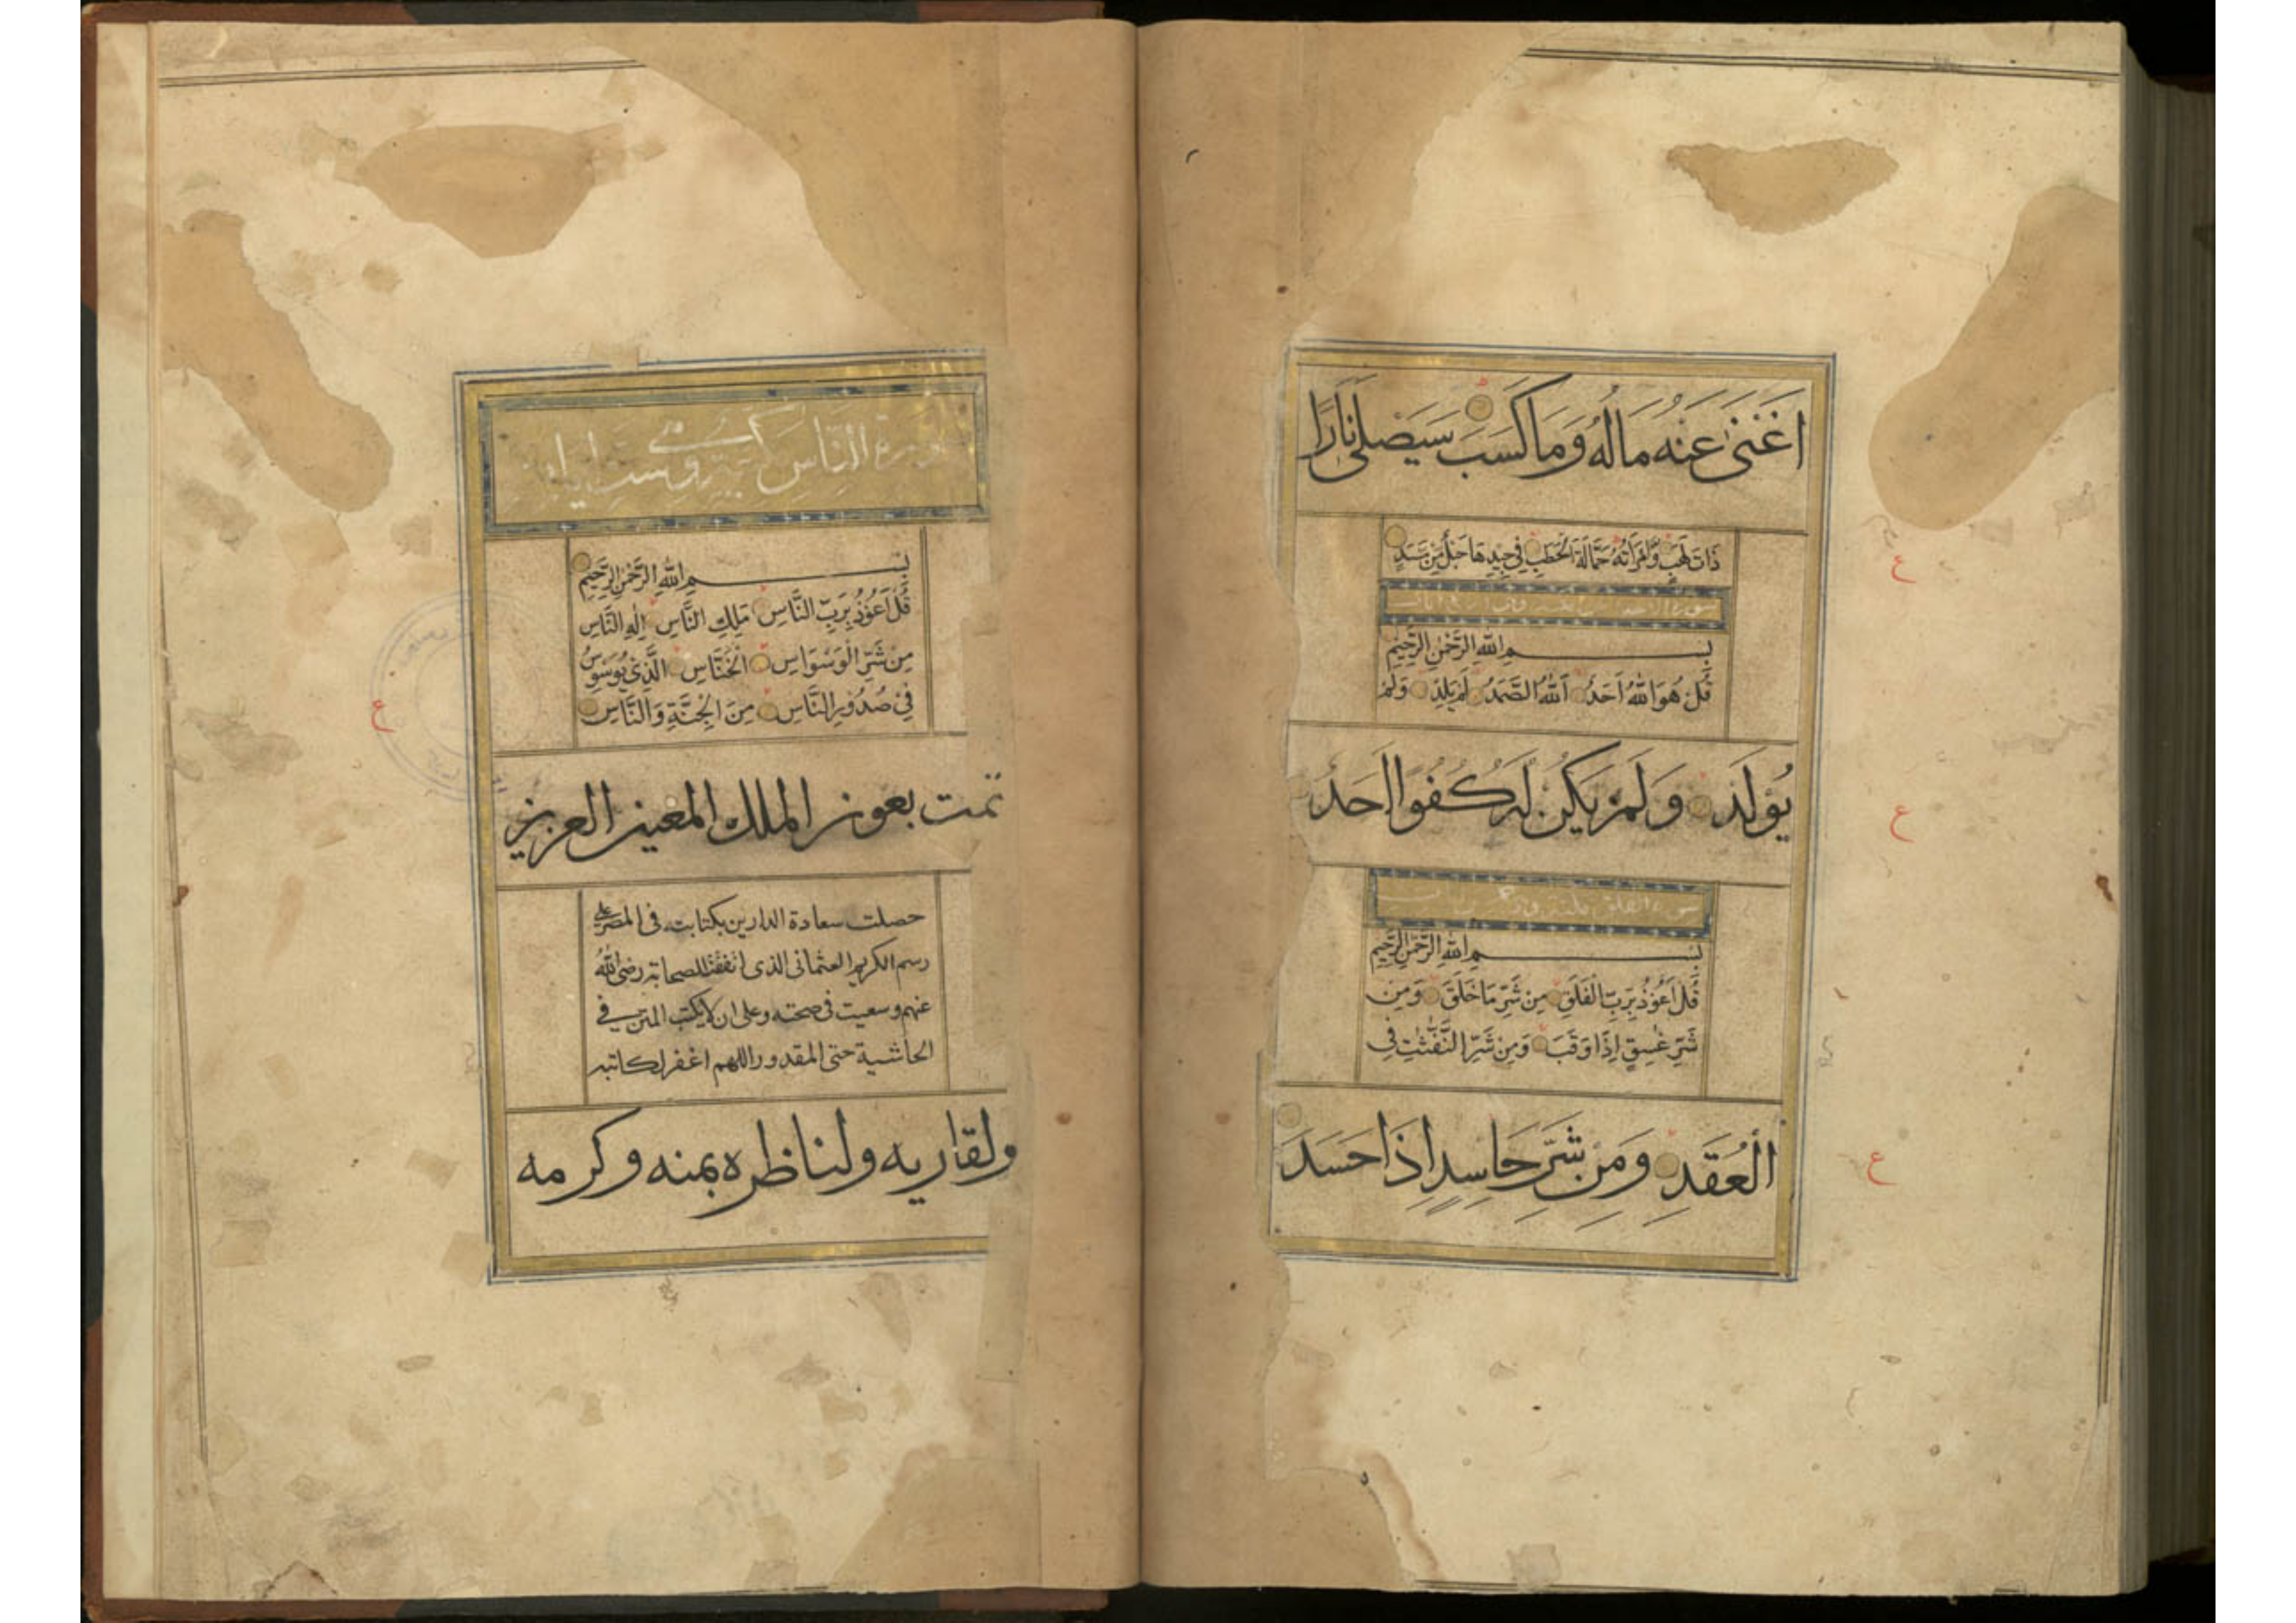 اَغْنٰى عَنْهُ مَالُهُ وَمَا كَسَبَ سَيَصْلٰى نَارًا
ذَاتَ لَهَبٍ وَّامْرَاَتُهُ حَمَّالَةَ الْحَطَبِ فِيْ جِيْدِهَا حَبْلٌ مِّنْ مَّسَدٍ
بِسْمِ اللهِ الرَّحْمٰنِ الرَّحِيْمِ
قُلْ هُوَ اللهُ اَحَدٌ اَللهُ الصَّمَدُ لَمْ يَلِدْ وَلَمْ
يُوْلَدْ وَلَمْ يَكُنْ لَهُ كُفُوًا اَحَدٌ
بِسْمِ اللهِ الرَّحْمٰنِ الرَّحِيْمِ
قُلْ اَعُوْذُ بِرَبِّ الْفَلَقِ مِنْ شَرِّ مَا خَلَقَ وَمِنْ
شَرِّ غٰسِقٍ اِذَا وَقَبَ وَمِنْ شَرِّ النَّفّٰثٰتِ فِي
الْعُقَدِ وَمِنْ شَرِّ حَاسِدٍ اِذَا حَسَدَ
سورة النَّاسِ
بِسْمِ اللهِ الرَّحْمٰنِ الرَّحِيْمِ
قُلْ اَعُوْذُ بِرَبِّ النَّاسِ مَلِكِ النَّاسِ اِلٰهِ النَّاسِ
مِنْ شَرِّ الْوَسْوَاسِ الْخَنَّاسِ الَّذِيْ يُوَسْوِسُ
فِيْ صُدُوْرِ النَّاسِ مِنَ الْجِنَّةِ وَالنَّاسِ
تمت بعون الملك المعين العزيز
حصلت سعادة الدارين بكتابته فى المصر على
رسم الكريم العثمانى الذى اتفقت للصحابة رضى الله
عنهم وسعيت فى صحته وعلى ان لا يكتب المتن فى
الحاشية حتى المقدور اللهم اغفر لكاتبه
ولقاريه ولناظره بمنه وكرمه